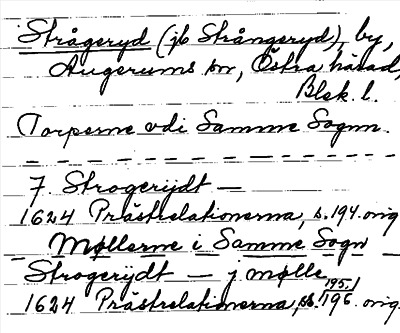 Strågeryd (jb Strångeryd), by,
Augerums sn, Östra härad,
Blek. l.
Torperne udi Samme Sogn.
7. Strogerijdt —
1624 Prästrelationerna, s. 194. orig
Møllerne i Samme Sogn
Strogerijdt — j mølle
1624 Prästrelationerna, ss. 195, 196. orig.